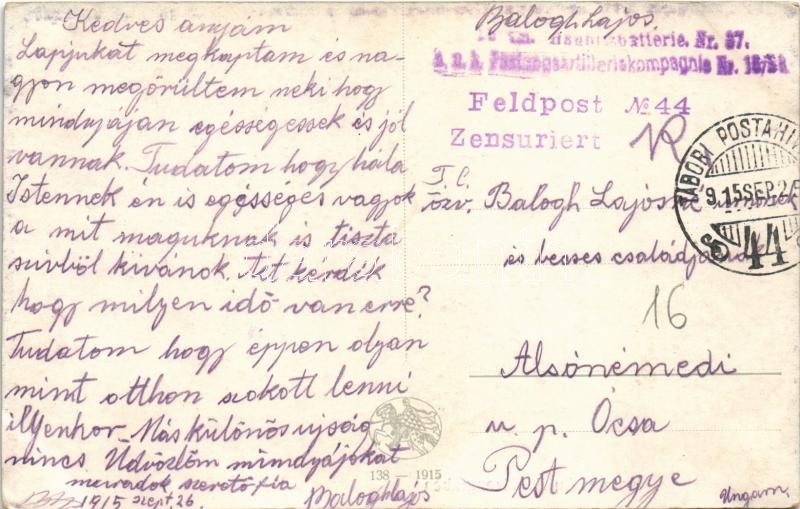 Kedves anyám
Lapjukat megkaptam és na-
gyon megörültem neki hogy
mindnyájan egésségessek és jól
vannak. Tudatom hogy hála
Istennek én is egésséges vagyok
a mit maguknak is tiszta
szivből kivánok. Azt kérdik
hogy milyen idő van erre?
Tudatom hogy éppen olyan
mint otthon szokott lenni
illyenkor. Más különös ujság
nincs Üdvözlöm mindnyájokat
maradok szerető fia
1915 szept. 26.
Balogh Lajos
138 — 1915
Balogh Lajos.
Haubitzbatterie. Nr. 37.
k. u. k. Festungsartilleriekompagnie Nr.
Feldpost No 44
Zensuriert
TÁBORI POSTAHIV
9 15 SEP. 2
44
T. C.
özv. Balogh Lajosné
és becses családjának
16
Alsónémedi
u. p. Ócsa
Pest megye
Ungarn.